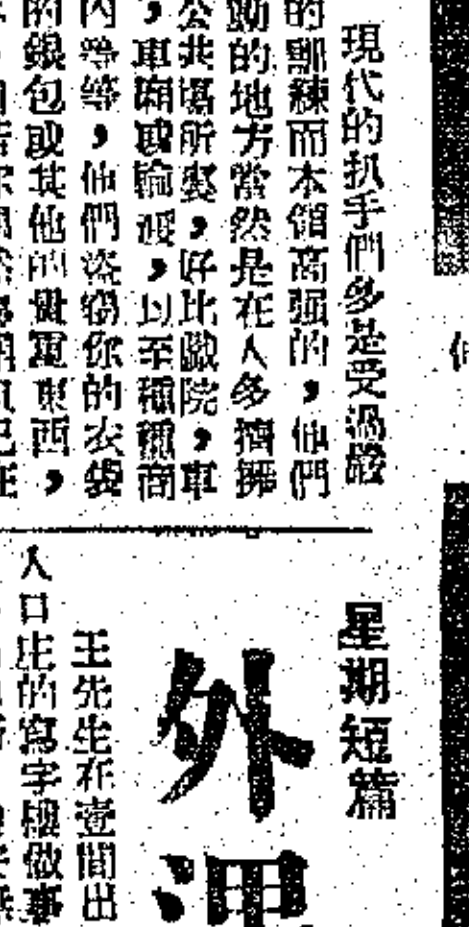 現代的扒手們多是受過嚴
的訓練而本領高强的，他們
動的地方當然是在人多擠擁
公共場所裏，好比戲院，車
，車廂或輪渡，以至種種商
內等等，他們盜竊你的衣袋
的銀包或其他的貴重東西，
星期短篇
外
王先生在壹間出
入口庄的寫字樓做事